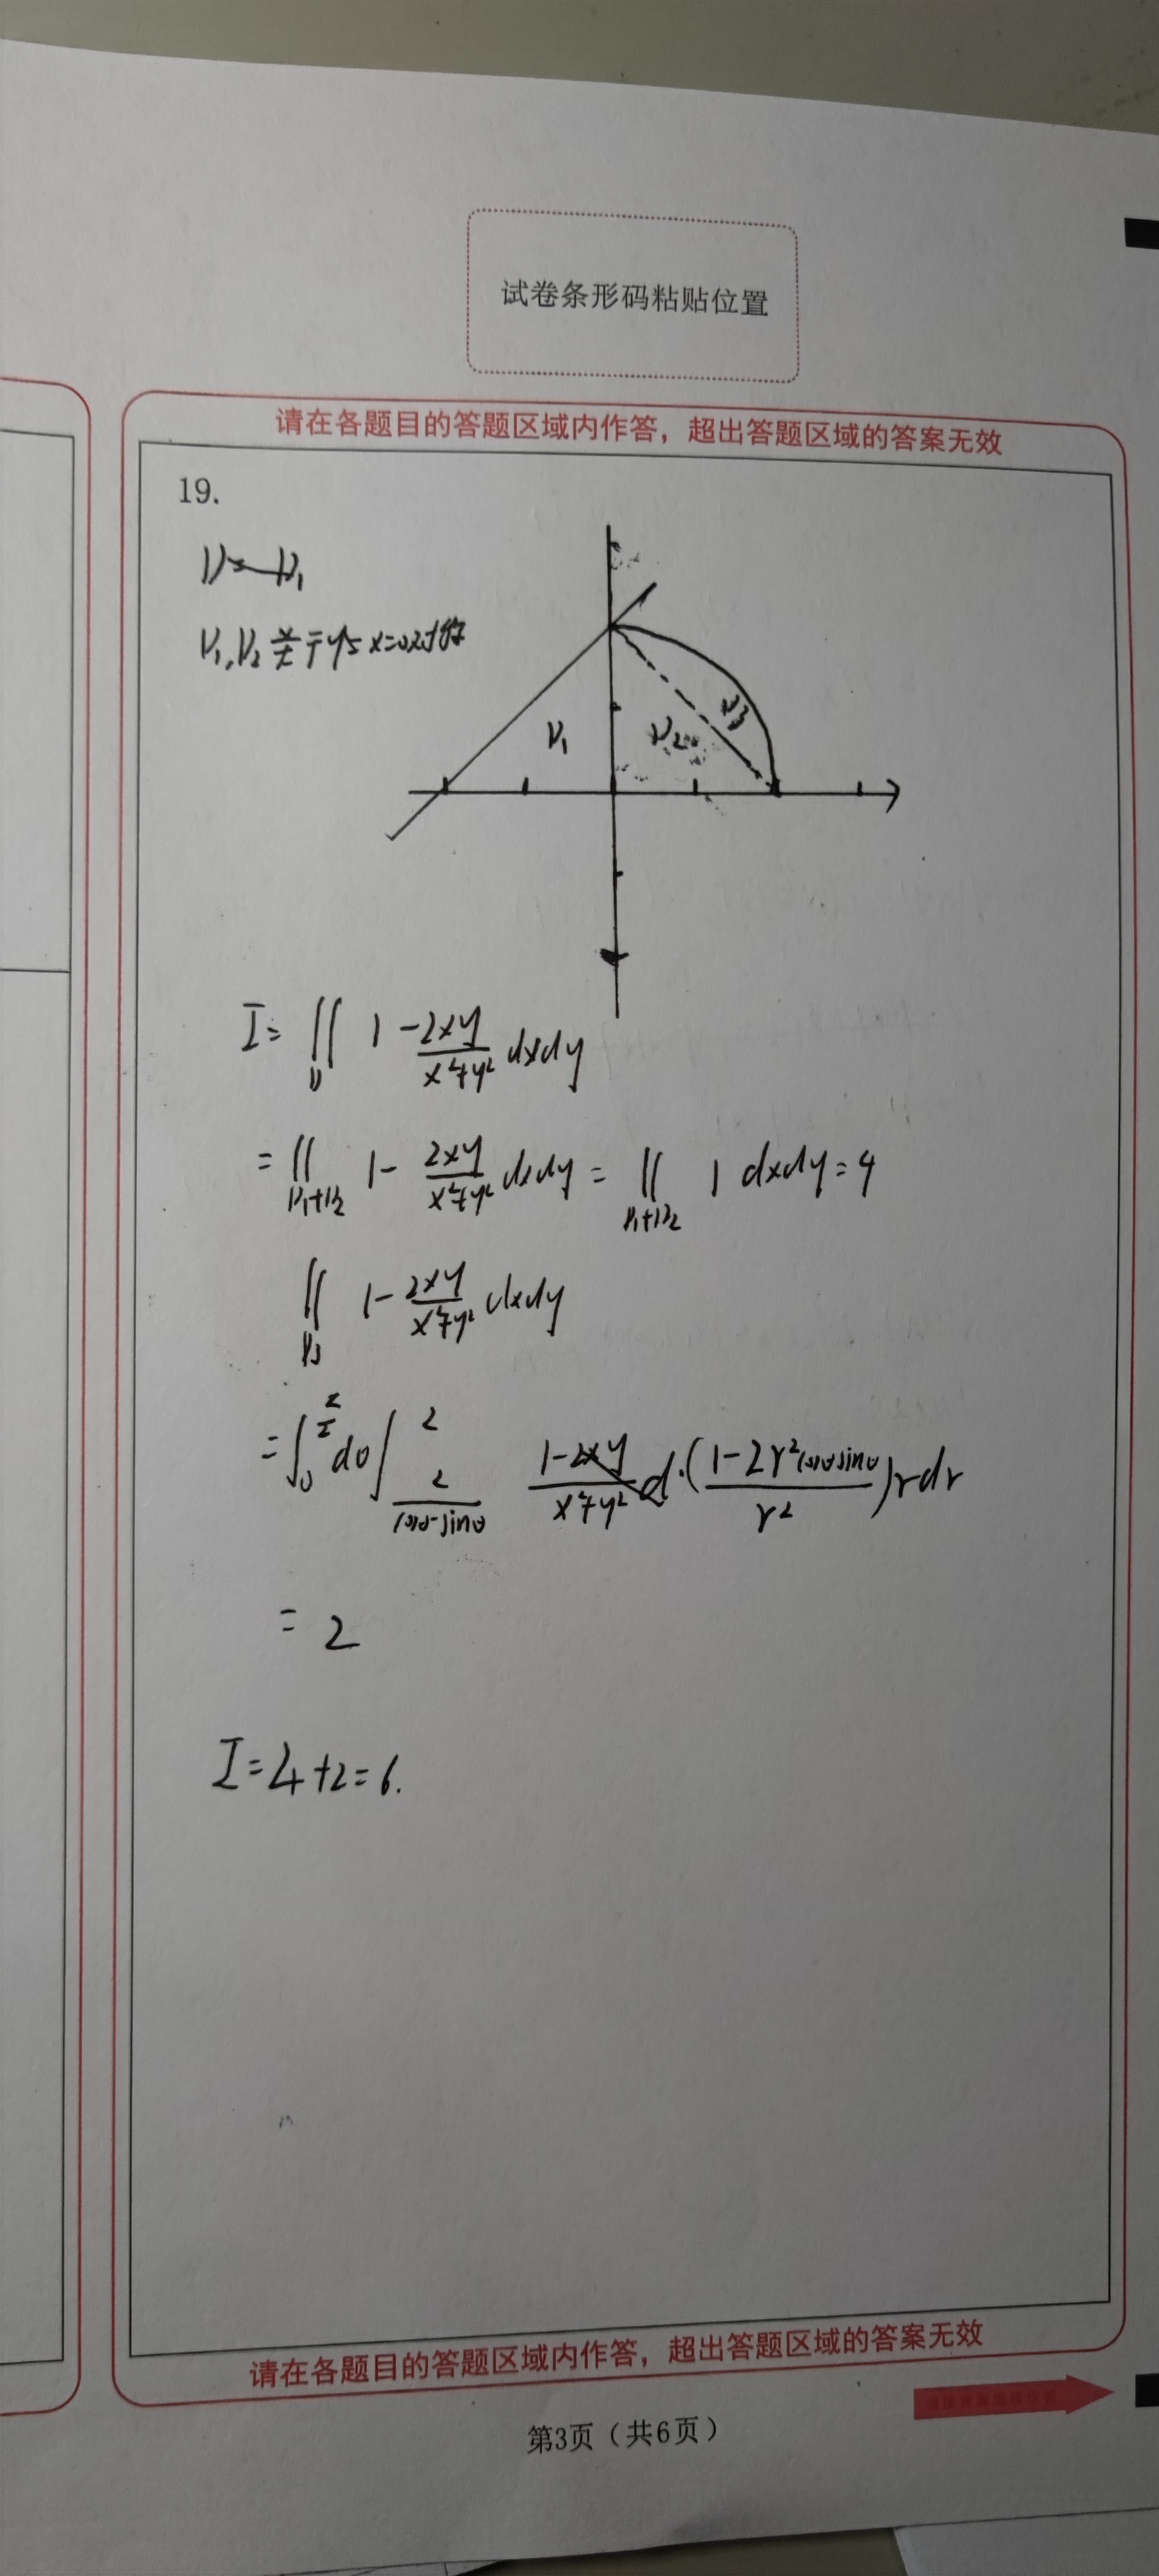 试卷条形码粘贴位置
请在各题目的答题区域内作答，超出答题区域的答案无效
19.
D=D₁
D₁,D₂关于y与x=0对称
D₁
D₂
D₃
I= ∬_D 1 - 2xy/(x²+y²) dxdy
= ∬_{D₁+D₂} 1 - 2xy/(x²+y²) dxdy = ∬_{D₁+D₂} 1 dxdy = 4
∬_{D₃} 1 - 2xy/(x²+y²) dxdy
= ∫_0^{π/2} dθ ∫_{2/(cosθ-sinθ)}^{2} (1-2xy)/(x²+y²) d·((1-2r²cosθsinθ)/r²) r dr
= 2
I=4+2=6.
请在各题目的答题区域内作答，超出答题区域的答案无效
第3页（共6页）